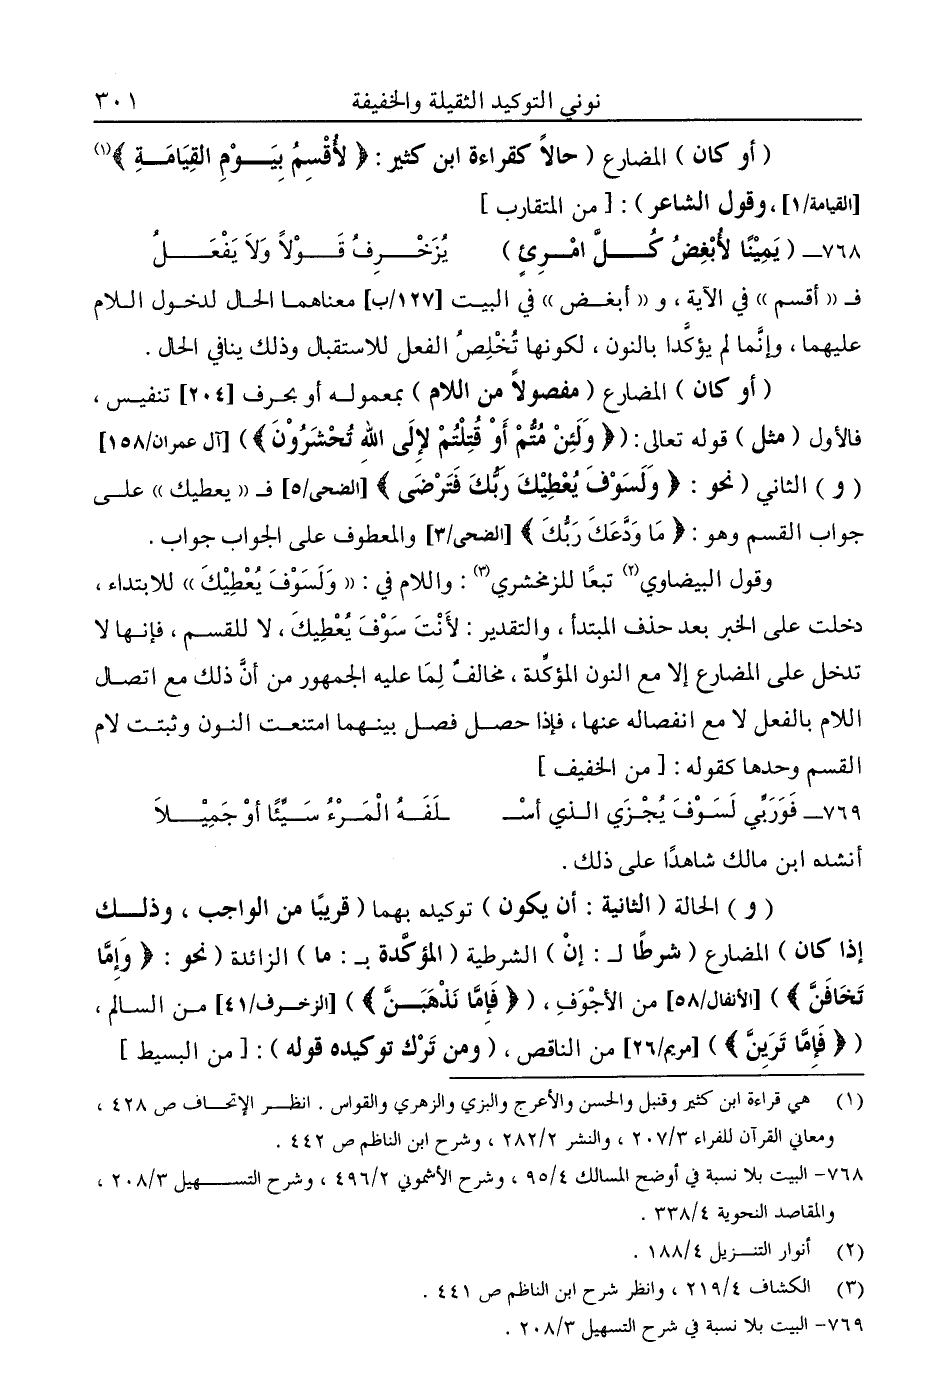 نوني التوكيد الثقيلة والخفيفة ٣٠١
( أو كان ) المضارع ( حالاً كقراءة ابن كثير : ﴿ لأُقْسِمُ بِيَـــوْمِ القِيَامَـــةِ ﴾(١)
[القيامة/١] ، وقول الشاعر ) : [ من المتقارب ]
٧٦٨ــ ( يَمِيْنًا لأُبْغِضُ كُـــلَّ امْـرِئٍ ) يُزَخْـــرِفُ قَـــوْلاً وَلاَ يَفْعَـــلُ
فـ « أقسم » في الآية ، و « أبغـض » في البيـت [١٢٧/ب] معناهمـا الحال لدخـول الـلام
عليهما ، وإنَّما لم يؤكَّدا بالنون ، لكونها تُخْلِصُ الفعل للاستقبال وذلك ينافي الحال .
( أو كان ) المضارع ( مفصولاً من اللام ) بمعمولـه أو بحرف [٢٠٤] تنفيس ،
فالأول ( مثل ) قوله تعالى : ( ﴿ وَلَئِنْ مُتُّمْ أَوْ قُتِلْتُمْ لإِلَى اللهِ تُحْشَرُوْنَ ﴾ ) [آل عمران/١٥٨]
( و ) الثاني ( نحو : ﴿ وَلَسَوْفَ يُعْطِيْكَ رَبُّكَ فَتَرْضَى ﴾ [الضحى/٥] فـ « يعطيك » علـى
جواب القسم وهو : ﴿ مَا وَدَّعَكَ رَبُّكَ ﴾ [الضحى/٣] والمعطوف على الجواب جواب .
وقول البيضاوي(٢) تبعًا للزمخشري(٣) : واللام في : « وَلَسَوْفَ يُعْطِيْكَ » للابتداء ،
دخلت على الخبر بعد حذف المبتدأ ، والتقدير : لأَنْتَ سَوْفَ يُعْطِيكَ ، لا للقسم ، فإنـها لا
تدخل على المضارع إلا مع النون المؤكِّدة ، مخالفٌ لِمَا عليه الجمهور من أنَّ ذلك مع اتصـال
اللام بالفعل لا مع انفصاله عنها ، فإذا حصـل فصـل بينـهما امتنعـت النـون وثبتـت لام
القسم وحدها كقوله : [ من الخفيف ]
٧٦٩ــ فَوَرَبِّي لَسَـوْفَ يُجْزَي الـذي أسْـــ ـــلَفَـهُ الْمَـرْءُ سَـيِّئًا أوْ جَمِيْـــلاَ
أنشده ابن مالك شاهدًا على ذلك .
( و ) الحالة ( الثانية : أن يكون ) توكيده بهما ( قريبًا من الواجب ، وذلـــك
إذا كان ) المضارع ( شرطًا لـ : إنْ ) الشرطية ( المؤكَّدة بـ : ما ) الزائدة ( نحو : ﴿ وَإِمَّا
تَخَافَنَّ ﴾ ) [الأنفال/٥٨] من الأجْوَفِ ، ( ﴿ فَإِمَّا نَذْهَبَـــنَّ ﴾ ) [الزخـرف/٤١] مـن السـالم ،
( ﴿ فَإِمَّا تَرَيِنَّ ﴾ ) [مريم/٢٦] من الناقص ، ( ومن تَرْك توكيده قوله ) : [ من البسيط ]
(١) هي قراءة ابن كثير وقنبل والحسن والأعرج والبزي والزهري والقواس . انظـر الإتحـاف ص ٤٢٨ ،
ومعاني القرآن للفراء ٢٠٧/٣ ، والنشر ٢٨٢/٢ ، وشرح ابن الناظم ص ٤٤٢ .
٧٦٨- البيت بلا نسبة في أوضح المسالك ٩٥/٤ ، وشرح الأشموني ٤٩٦/٢ ، وشرح التســـهيل ٢٠٨/٣ ،
والمقاصد النحوية ٣٣٨/٤ .
(٢) أنوار التنـــزيل ١٨٨/٤ .
(٣) الكشاف ٢١٩/٤ ، وانظر شرح ابن الناظم ص ٤٤١ .
٧٦٩- البيت بلا نسبة في شرح التسهيل ٢٠٨/٣ .